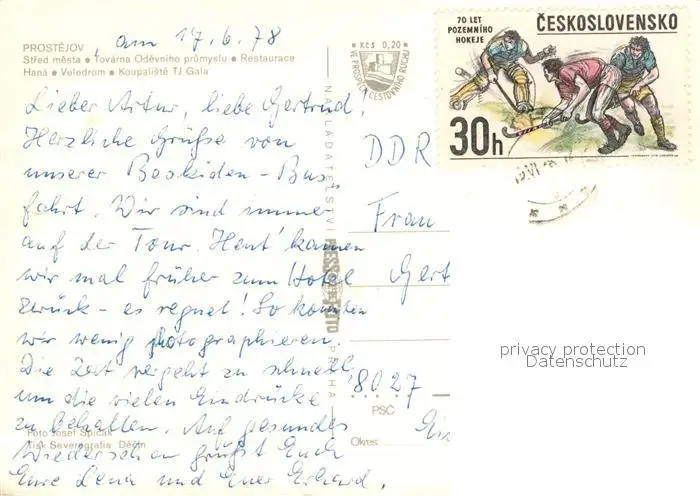 am 17.6.78
PROSTĚJOV
Střed města ● Továrna Oděvního průmyslu ● Restaurace
Haná ● Velodrom ● Koupaliště TJ Gala
Lieber Artur, liebe Gertrud!
Herzliche Grüße von
unserer Beskiden-Bus-
fahrt. Wir sind immer
auf der Tour. Heut' kamen
wir mal früher zum Hotel
zurück - es regnet! So konnten
wir wenig photographieren.
Die Zeit vergeht zu schnell,
um die vielen Eindrücke
zu behalten. Auf gesundes
Wiedersehen grüßt Euch
Eure Lena und Euer Erhard.
Foto Josef Špičák
Tisk Severografia Děčín
NAKLADATELSTVÍ PRESSFOTO PRAHA
Kčs 0,20
VE PROSPĚCH CESTOVNÍHO RUCHU
70 LET
POZEMNÍHO
HOKEJE
ČESKOSLOVENSKO
30h
DDR
Frau
Gert
8027
PSČ
Okres:
privacy protection
Datenschutz